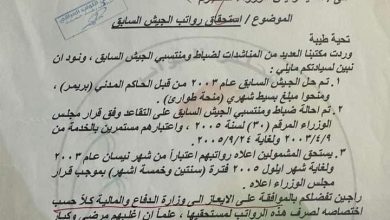 الموضوع / استحقاق رواتب الجيش السابق
تحية طيبة
وردت مكتبنا العديد من المناشدات لضباط ومنتسبي الجيش السابق لذا نود ان
نبين لسيادتكم مايلي :
١. تم حل الجيش السابق عام ٢٠٠٣ من قبل الحاكم المدني (بريمر) ,
ومنحوا مبلغ بسيط شهري (منحة طوارئ) .
٢. تم احالة ضباط ومنتسبي الجيش السابق على التقاعد وفق قرار مجلس
الوزراء المرقم (٣٠) لسنة ٢٠٠٥ , واعتبارهم مستمرين بالخدمة من
٢٠٠٣/٤/٩ ولغاية ٢٠٠٥/٩/٢٤ .
٣. يستحق المشمولين اعلاه رواتبهم اعتباراً من شهر نيسان عام ٢٠٠٣
ولغاية شهر ايلول ٢٠٠٥ فترة (سنتين وخمسة اشهر) بموجب قرار
مجلس الوزراء اعلاه .
راجين تفضلكم بالموافقة على الايعاز الى وزارة الدفاع والمالية كلاً حسب
اختصاصه لصرف هذه الرواتب لمستحقيها , علماً ان اغلبهم مرضى وكبار